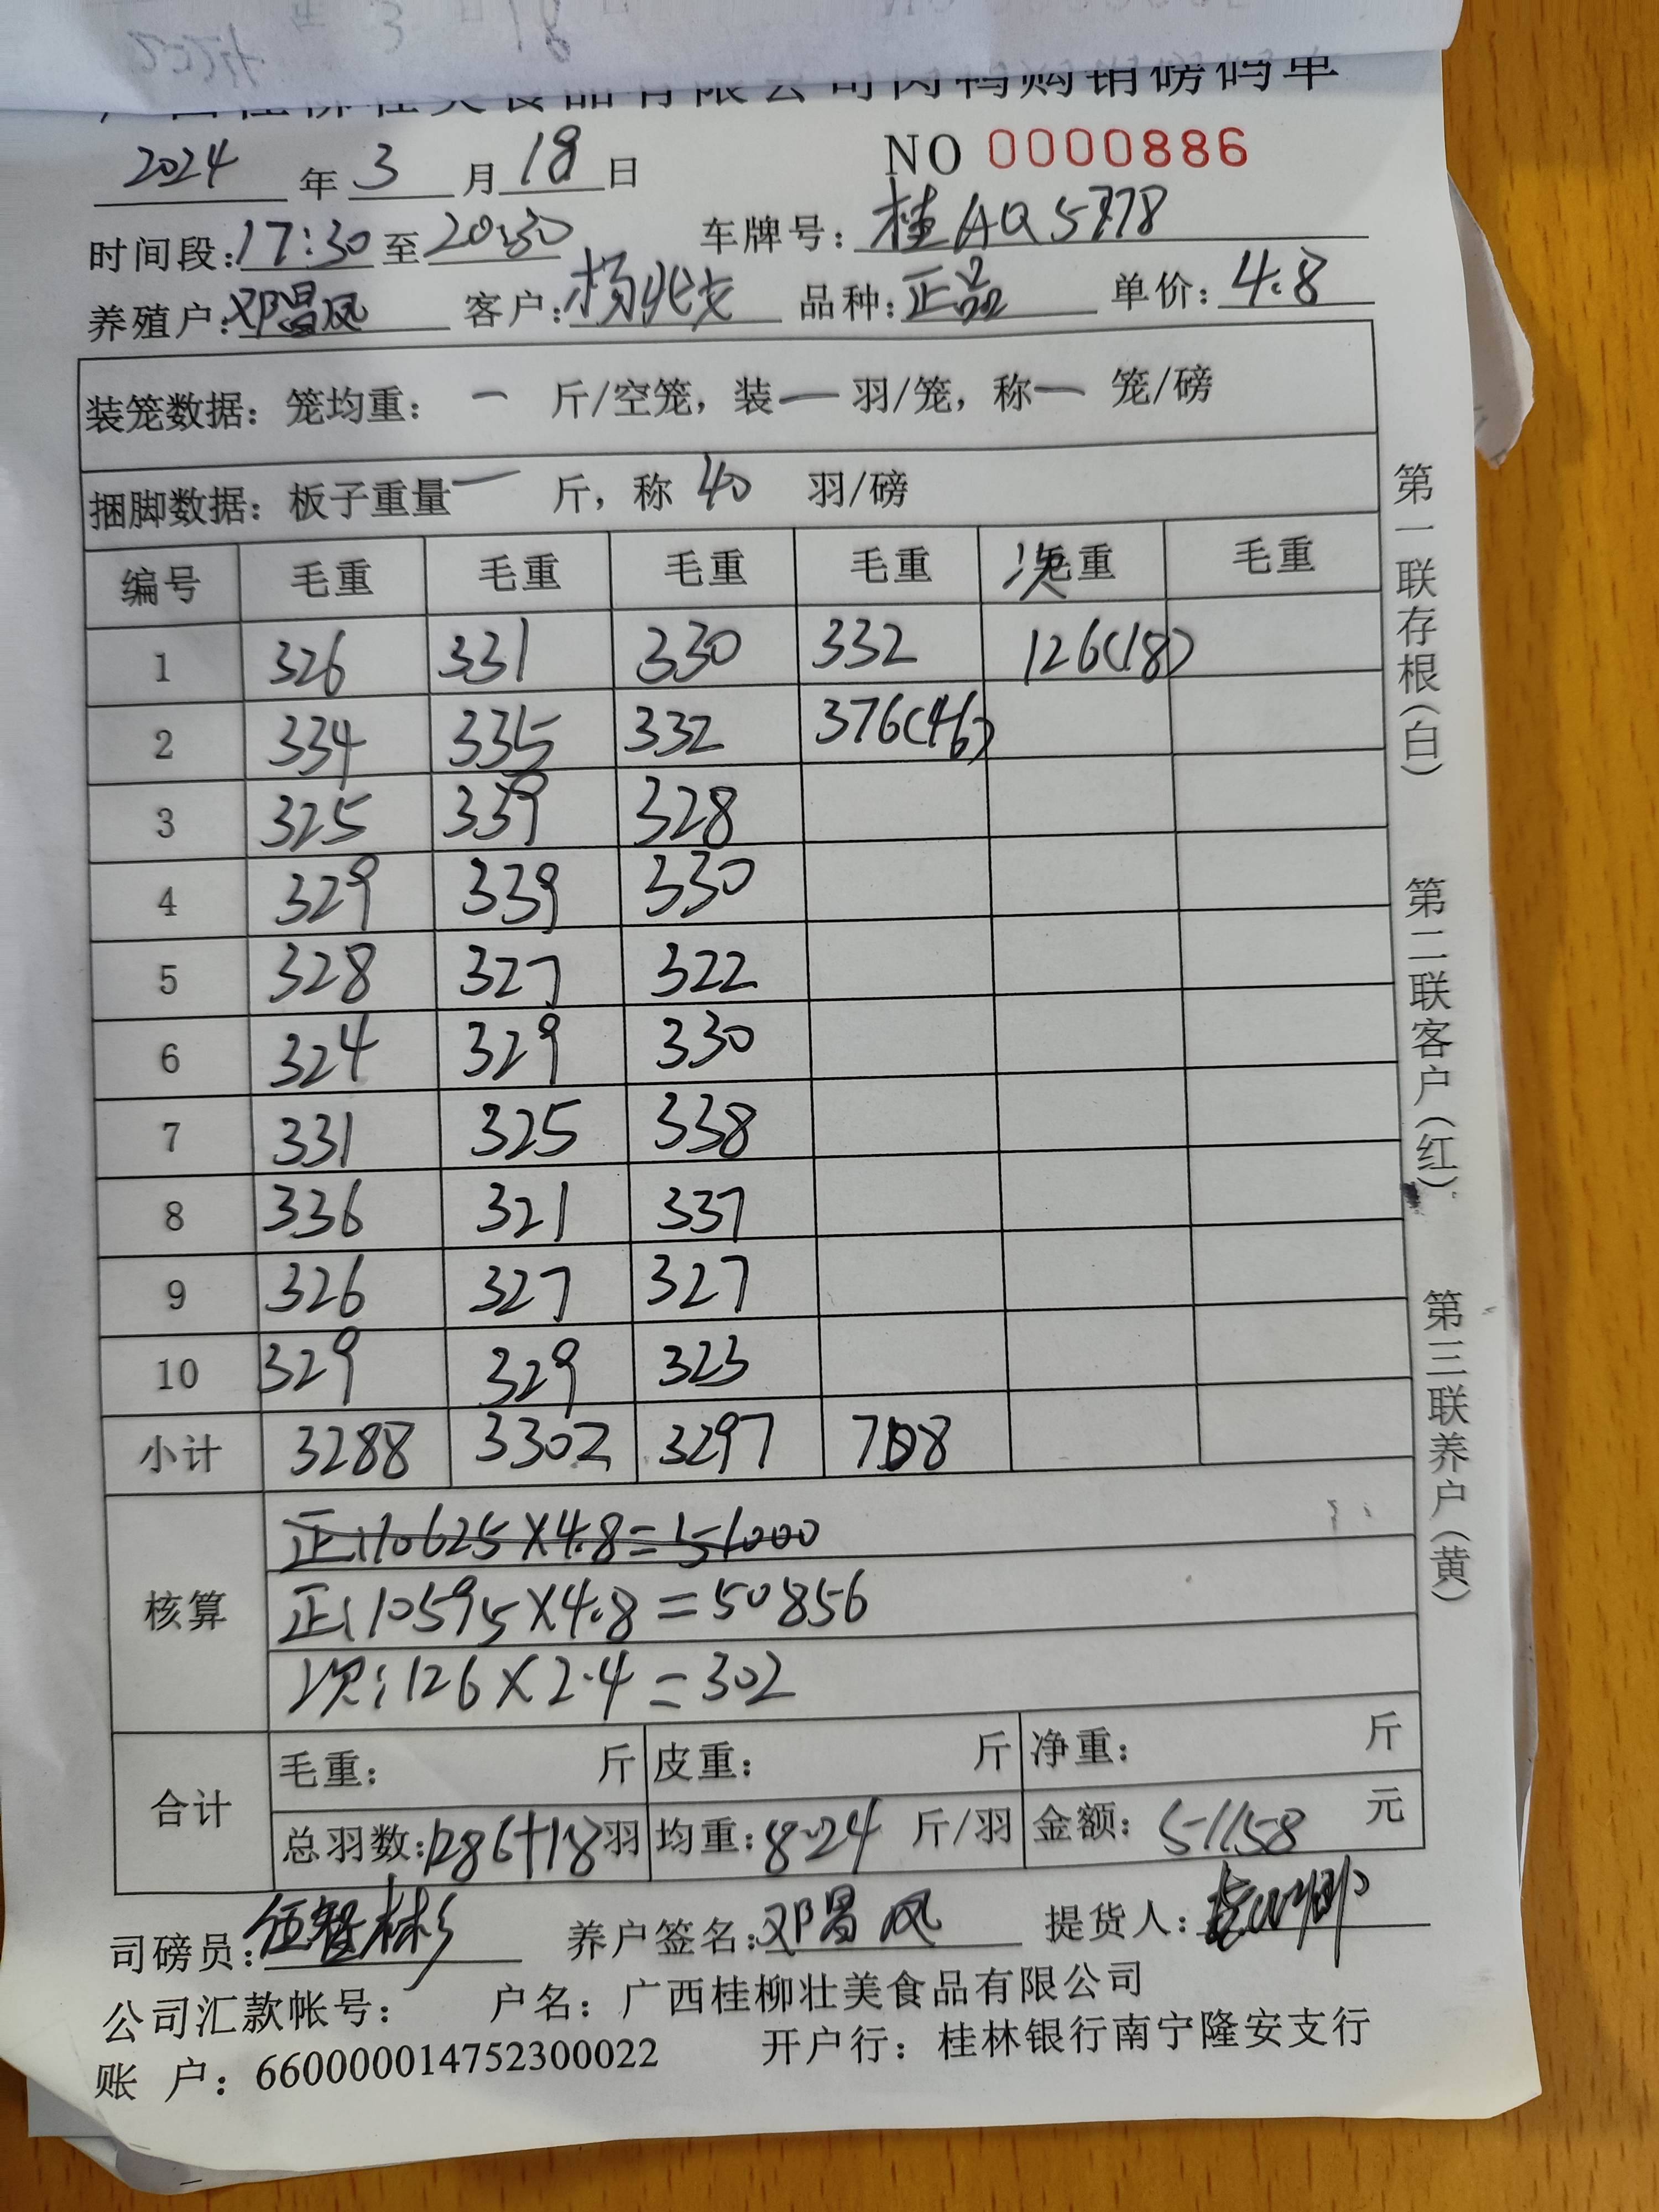 广西桂柳壮美食品有限公司肉鸭购销磅码单
2024 年 3 月 18 日 NO 0000886
时间段:17:30 至 20:30 车牌号: 桂AQ5778
养殖户:邓昌凤 客户: 品种:正品 单价: 4.8
装笼数据: 笼均重: 一 斤/空笼, 装一 羽/笼, 称一 笼/磅
捆脚数据: 板子重量一 斤, 称 40 羽/磅
编号 毛重 毛重 毛重 毛重 次毛重 毛重
1 326 331 330 332 126(18)
2 334 335 332 376(46)
3 325 339 328
4 329 339 330
5 328 327 322
6 324 329 330
7 331 325 338
8 336 321 337
9 326 327 327
10 329 329 323
小计 3288 3302 3297 708
核算
正:10625×4.8=51000
正:10595×4.8=50856
次:126×2.4=302
合计
毛重: 斤 皮重: 斤 净重: 斤
总羽数:1286+18羽 均重:8.24 斤/羽 金额: 51158 元
司磅员:伍智彬 养户签名:邓昌凤 提货人:
公司汇款帐号: 户名: 广西桂柳壮美食品有限公司
账 户: 660000014752300022 开户行: 桂林银行南宁隆安支行
第一联存根(白) 第二联客户(红) 第三联养户(黄)